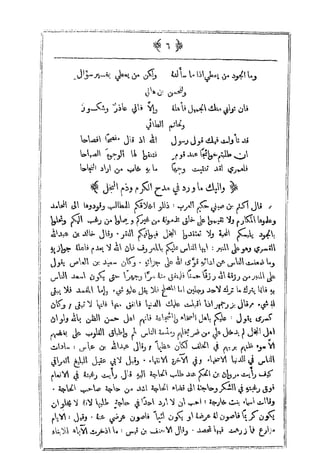 ﴿ ٦ ﴾
وما الجود من يعطي اذا ما سألته ولكن من يعطي بغير سؤال
وللحسن بن هاني
فان توليني منك الجميل فأهله والا فاني عاذر وشكور
ولحاتم الطائي
الله اذ قال مفصحا افصاحا
ان طلبتم حوائجا عند قوم فتنقوا لها الوجوه الصباحا
فلعمري لقد تنقيت وجها ما به خاب من اراد النجاحا
﴿ واليك ما ورد في مدح الكرم وذم البخل ﴾
قال أكثم بن صيفي حكيم العرب: ذللوا اخلاقكم للمطالب وقودوها الى المحامد
وعلموها المكارم ولا تقيموا على خلق تذمونه من غيركم وصلوا من رغب اليكم وتحلوا
بالجود يلبسكم المحبة ولا تعتقدوا البخل فتتعجلوا الفقر. وقال خالد بن عبدالله
القسري وهو على المنبر: ايها الناس عليكم بالمعروف فان الله لا يعدم فاعله جوازيه
وما ضعفت الناس عن ادائه قوى الله على جزائه. وكان سعيد بن العاص يقول
على المنبر من رزقه الله رزقا حسنا فلينفق منه سرا وجهرا حتى يكون اسعد الناس
به فانما يترك ما ترك لاحد رجلين اما لمصلح فلا يقل عليه شيء. واما لمفسد فلا يبقى
له شيء. وقال بزرجمهر اذا اقبلت عليك الدنيا فانفق منها فانها لا تفنى. وكان
كسرى يقول: عليكم باهل السخاء والشجاعة فانهم اهل حسن الظن بالله ولو ان
اهل البخل لم يدخل عليهم من ضر بخلهم ومذمة الناس لهم واطباق القلوب على بغضهم
الا سوء ظنهم بربهم في الخلف لكان عظيما. وقال عبدالله بن عباس: سادات
الناس في الدنيا الاسخياء وفي الآخرة الاتقياء. وقيل لابي عقيل البليغ العراقي
كيف رأيت مروان بن الحكم عند طلب الحاجة اليه قال رأيت رغبته في الانعام
فوق رغبته في الشكر وحاجته الى قضاء الحاجة اشد من حاجة صاحب الحاجة.
وقالت اسماء بنت خارجة: ما احب ان لا ارد احدا في حاجة طلبها لانه لا يخلو ان
يكون كريما فاصون له عرضه او يكون لئيما فاصون عرضي عنه. وقيل: الايام
مزارع فما زرعت فيها تحصد. وقال الاحنف بن قيس: ما ادخرت الآباء للابناء